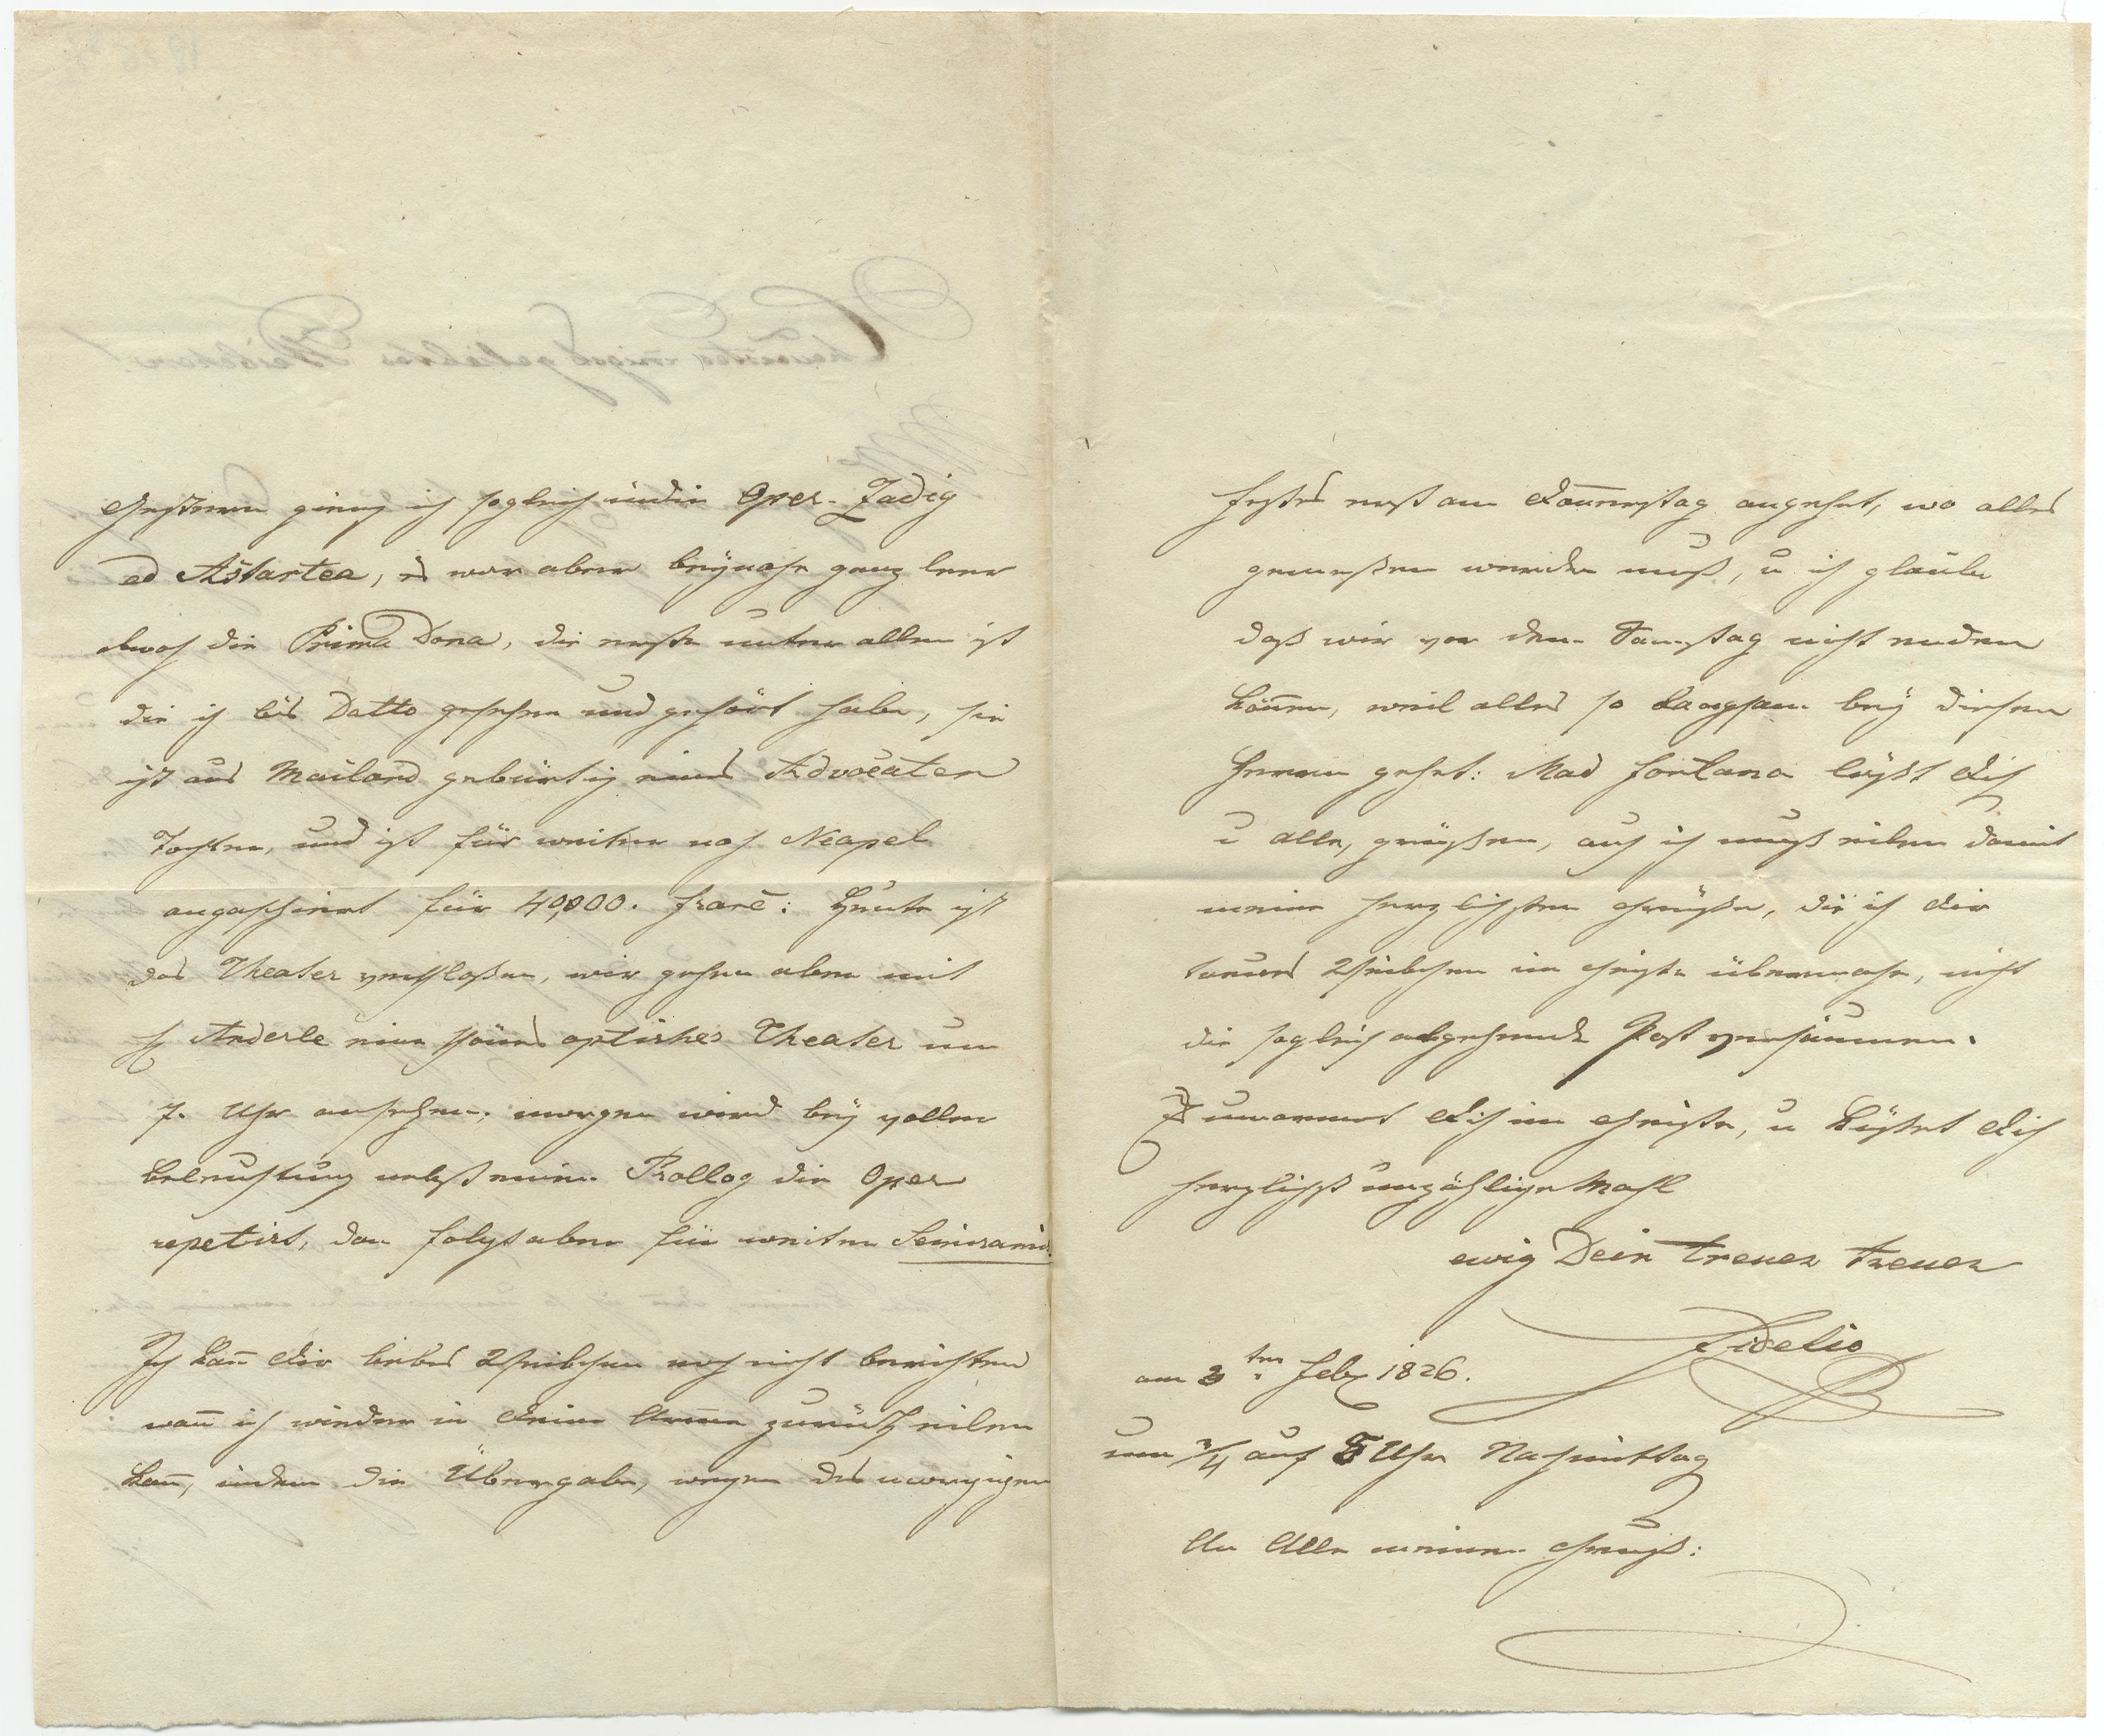 Gestern ging ich sogleich in die Oper Zadig
ed Astartea, es war aber beÿnahe ganz leer
doch die Prima Dona, die erste unter allen ist
die ich bis Datto gesehen und gehört habe, sie
ist aus Mailand gebürtig eines Advocaten
Tochter, und ist für weiter nach Neapel
angaschirt für 40,000. Franc: Heute ist
das Theater verschloßen, wir gehen aber mit
H Anderle ein schönes optisches Theater um
7. Uhr ansehen, morgen wird beÿ voller
Beleuchtung nebst einem Prollog die Oper
repetirt, dan folgt aber für weiter Semiramis.
Ich kan̄ Dir liebes Weibchen noch nicht berichten
wan̄ ich wieder in Deine Arme zurück eilen
kan̄, indem die Übergabe, wegen des
Festes erst am Don̄erstag angehet, wo alles
gemeßen werden muß, u ich glaube
daß wir vor dem Samstag nicht enden
kön̄en, weil alles so langsam beÿ diesen
Herren gehet: Mad Fontana läßt Dich
u alle, grüßen, auch ich muß eilen damit
meine herzlichsten Grüße, die ich Dir
teures Weibchen im Geiste übermache, nicht
die sogleich abgehende Post versäumen.
Es umarmet Dich im Geiste, u küßet Dich
herzlichst unzählige Mahl
ewig Dein treuer treuer
Fidelio
am 3ten Feb 1826.
um 3/4 auf 5 Uhr Nachmittag
An Alle meinen Gruß:
Theuerstes einigst geliebtes Weibchen!